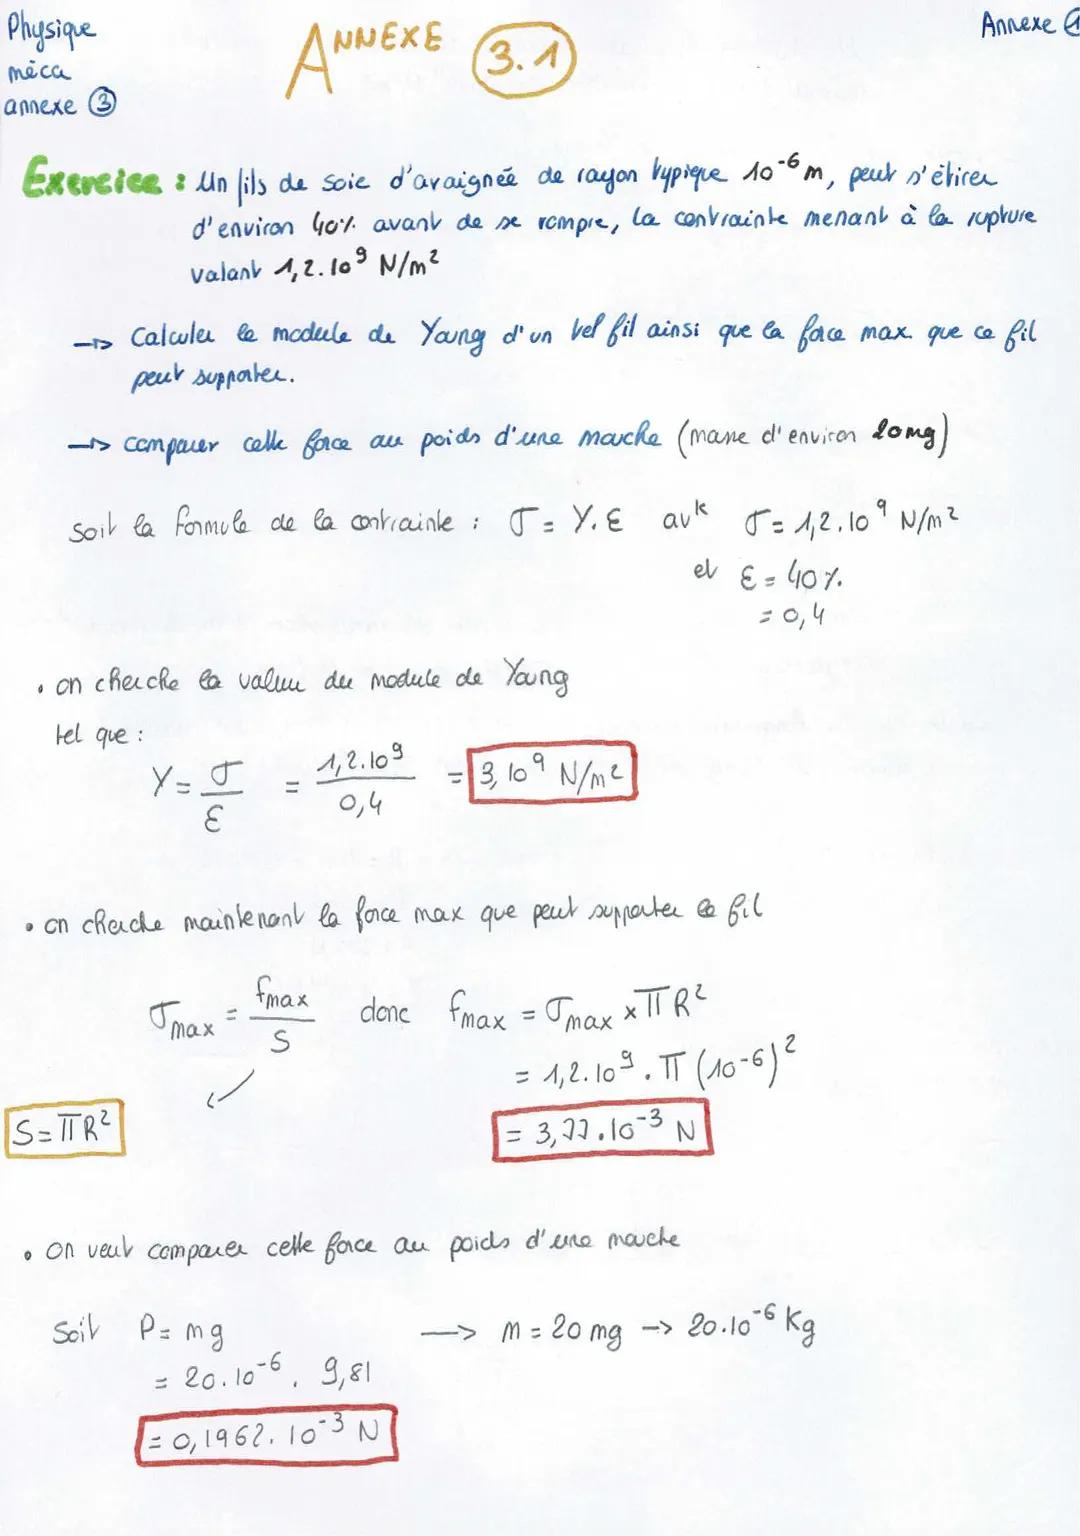 Physique
méca
annexe ③
ANNEXE 3.1
Annexe
Exercice : Un fils de soie d'avaignée de rayon typique 10⁻⁶ m, peut s'étirer
d'environ 40% avant de se rompre, la contrainte menant à la rupture
valant 1,2.10⁹ N/m²
→ Calculer le module de Young d'un tel fil ainsi que la force max que ce fil
peut supporter.
→ comparer cette force au poids d'une mouche (masse d'environ 20mg)
soit la formule de la contrainte : σ = Y.ε avec σ = 1,2.10⁹ N/m²
et ε = 40%
= 0,4
• on cherche la valeur du module de Young
tel que :
Y = σ/ε = 1,2.10⁹/0,4 = 3,10⁹ N/m²
• on cherche maintenant la force max que peut supporter le fil
σmax = fmax/S donc fmax = σmax x π R²
= 1,2.10⁹ . π (10⁻⁶)²
S = πR²
= 3,77.10⁻³ N
• on veut comparer cette force au poids d'une mouche
Soit P = mg → m = 20 mg → 20.10⁻⁶ Kg
= 20.10⁻⁶ . 9,81
= 0,1962.10⁻³ N